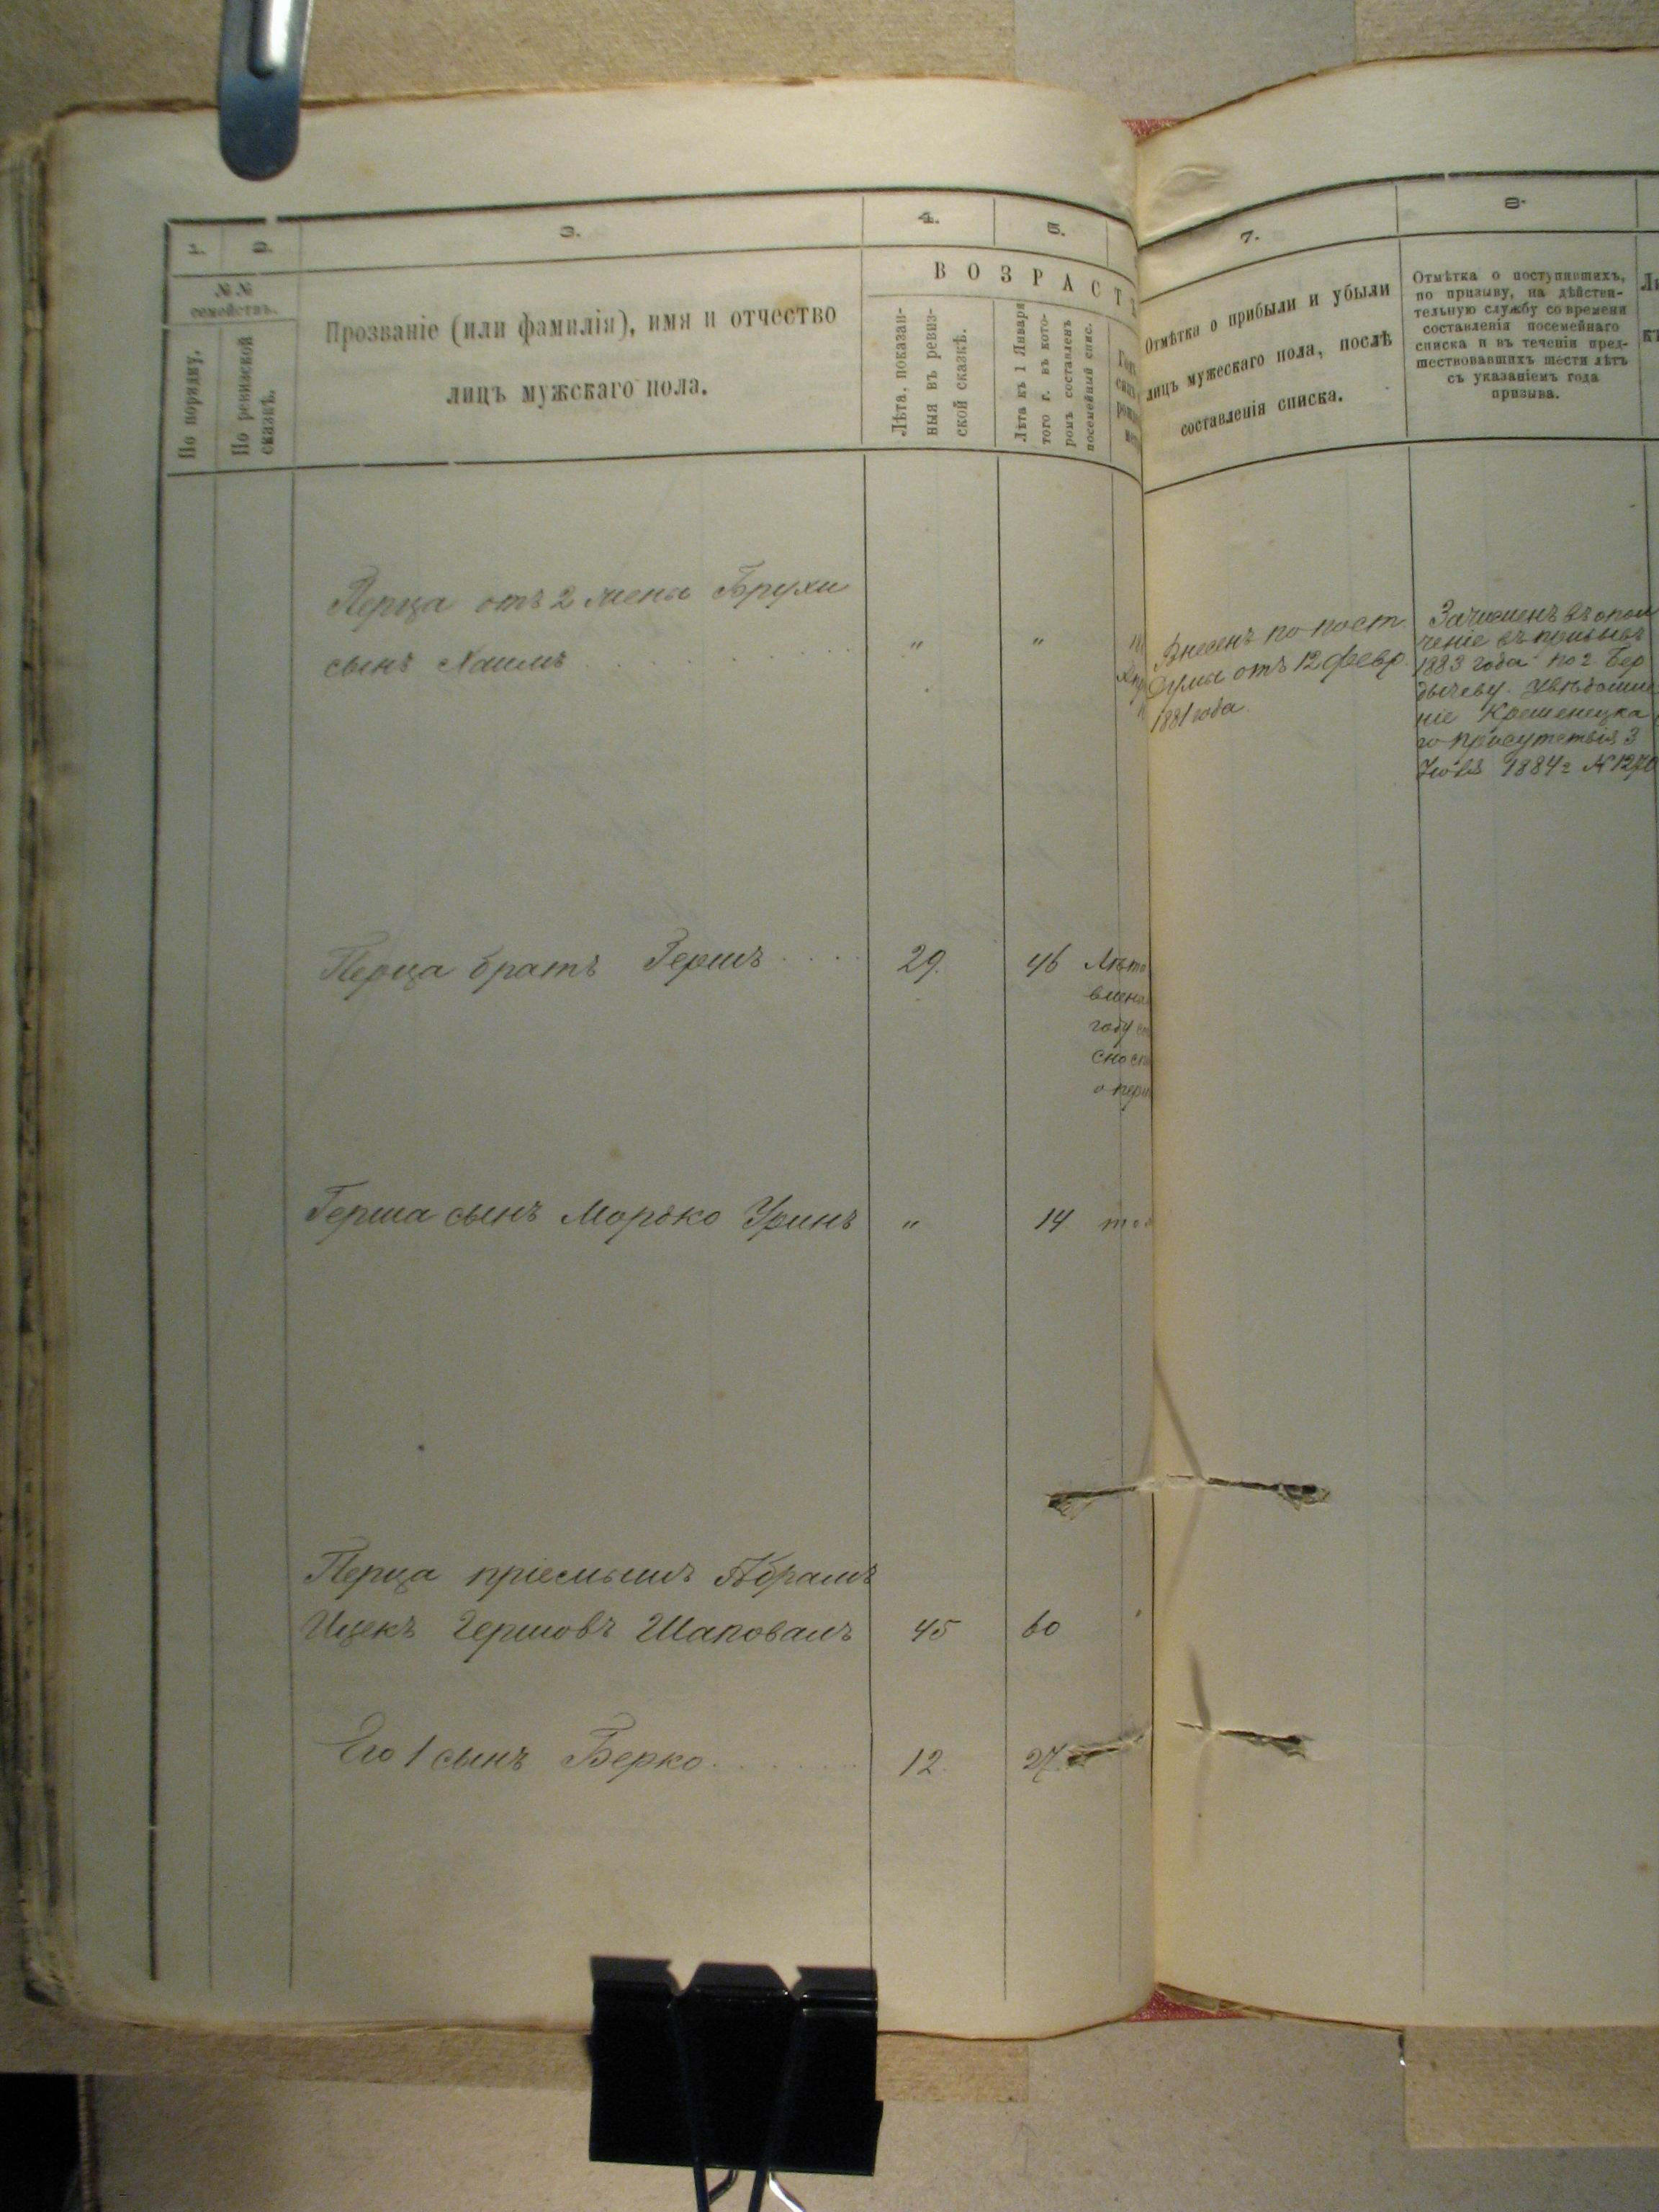 1.
2.
3.
4.
5.
7.
8.
№№
семействъ.
По порядку.
По ревизской
сказкѣ.
Прозваніе (или фамилія), имя и отчество
лицъ мужскаго пола.
ВОЗРАСТЪ
Лѣта, показан-
ныя въ ревиз-
ской сказкѣ.
Лѣта къ 1 Января
того г. въ кото-
ромъ составленъ
посемейный спис.
Отмѣтка о прибыли и убыли
лицъ мужескаго пола, послѣ
составленія списка.
Отмѣтка о поступившихъ,
по призыву, на дѣйстви-
тельную службу со времени
составленія посемейнаго
списка и въ теченіи пред-
шествовавшихъ шести лѣтъ
съ указаніемъ года
призыва.
Перца отъ 2 жены Брухи
сынъ Хаимъ " "
Внесенъ по пост.
Думы отъ 12 февр.
1881 года.
Зачисленъ въ опол
ченіе въ призывъ
1883 года по г. Бер
дичеву. Увѣдомле
ніе Кременецка
го присутствія 3
1884 г № 1270
Перца братъ Гершъ 29. 46
Герша сынъ Мордко Уринъ " 14
Перца пріемышъ Абрамъ
Ицекъ Гершовъ Шаповалъ 45 60
Его 1 сынъ Берко 12. 27